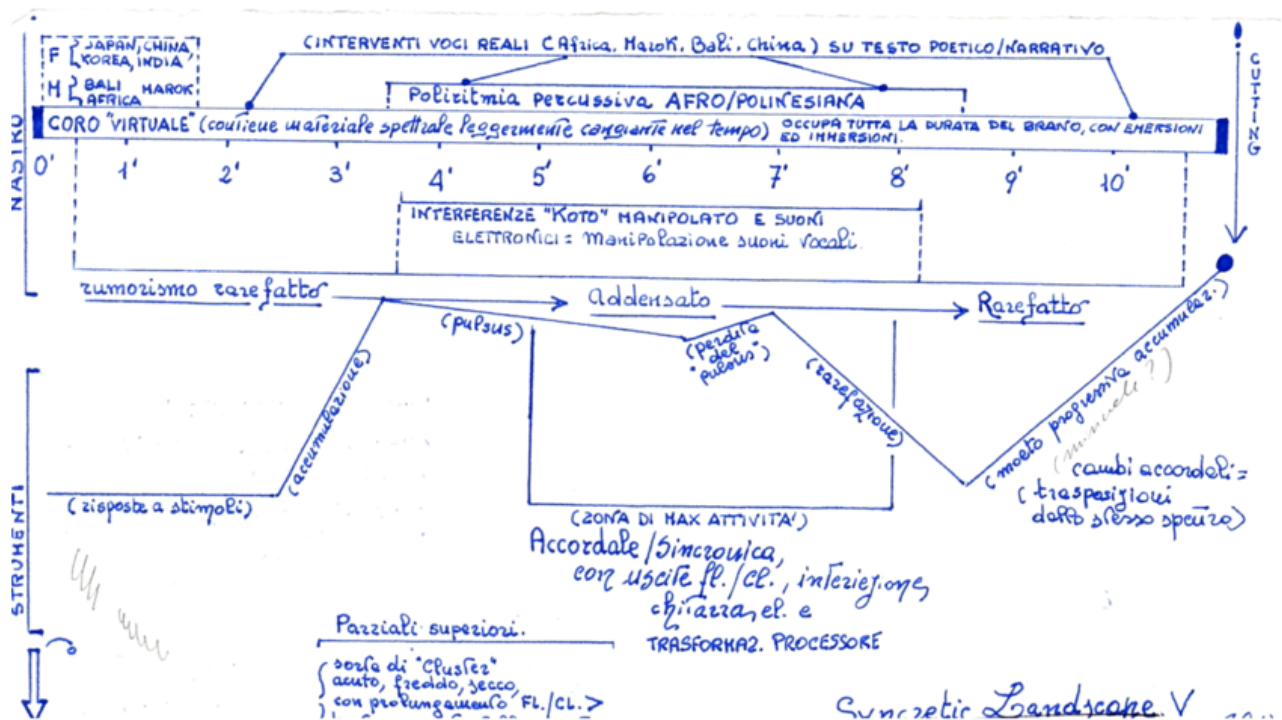 F { JAPAN, CHINA
KOREA, INDIA
M { BALI MAROK
AFRICA
(INTERVENTI VOCI REALI (Africa, Marok, Bali, China) SU TESTO POETICO/NARRATIVO
Poliritmia percussiva AFRO/POLINESIANA
CORO "VIRTUALE" (contiene materiale spettrale leggermente cangiante nel tempo) OCCUPA TUTTA LA DURATA DEL BRANO, CON EMERSIONI
ED IMMERSIONI.
CUTTING
NASTRO
0' 1' 2' 3' 4' 5' 6' 7' 8' 9' 10'
INTERFERENZE "KOTO" MANIPOLATO E SUONI
ELETTRONICI = Manipolazione suoni vocali.
rumorismo rarefatto
addensato
Rarefatto
(pulsus)
(perdita
del
"pulsus")
(accumulazione)
(rarefazione)
(molto progressiva accumulaz.)
(risposte a stimoli)
(ZONA DI MAX ATTIVITA')
cambi accordali =
(trasposizioni
dello stesso spettro)
STRUMENTI
Accordale/Sincronica,
con uscite fl./cl., interiezione
chitarra el. e
TRASFORMAZ. PROCESSORE
Parziali superiori.
sorta di "Cluster"
acuto, freddo, secco,
con prolungamento FL./CL. >
Syncretic Landscape V